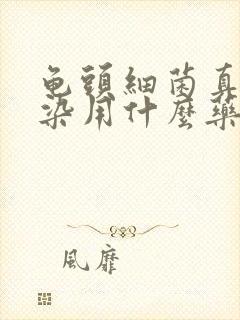 龟頭細菌真
染用什麼藥
風靡